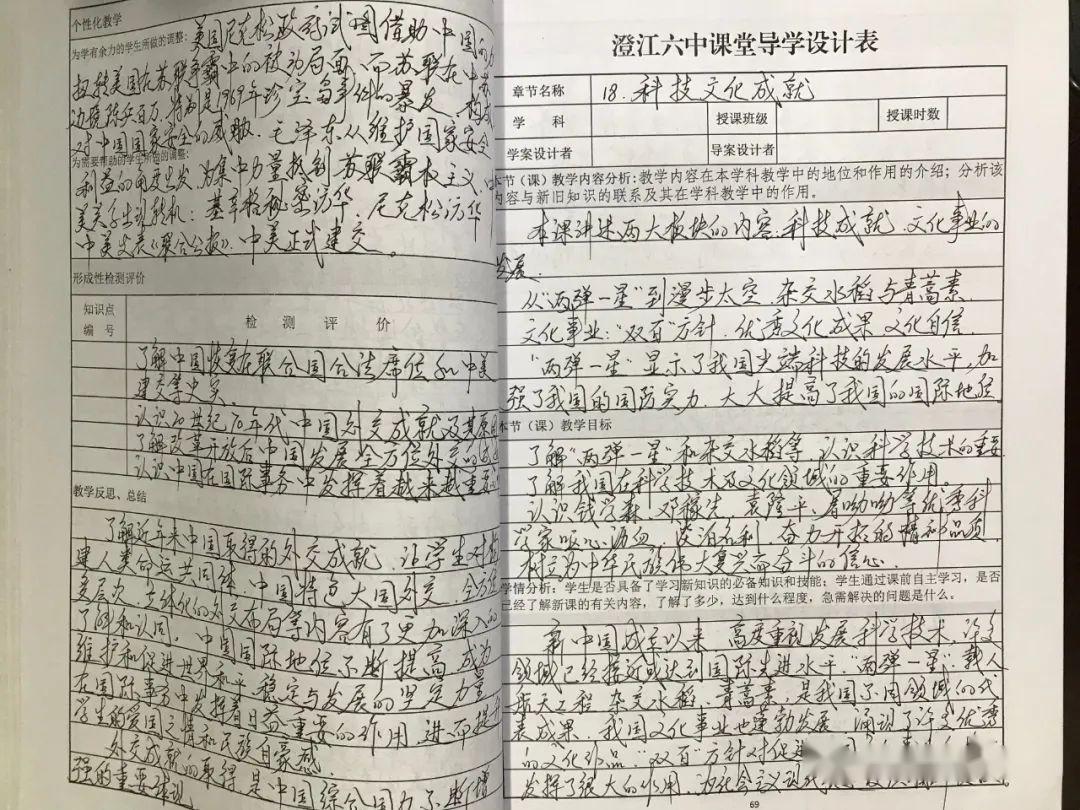 个性化教学
美国尼克松政府试图借助中国的力
为学有余力的学生所做的调整:
扭转美国在苏联争霸中的被动局面,而苏联在中苏
边境陈兵百万,特别是1969年珍宝岛事件的爆发,构成
对中国国家安全的威胁.毛泽东从维护国家安全
为需要帮助的学生所做的调整:
利益的角度出发,为集中力量抵制苏联霸权主义,
美关系出现转机:基辛格秘密访华,尼克松访华
中美发表《联合公报》.中美正式建交。
形成性检测评价
知识点
编 号
检 测 评 价
了解中国恢复在联合国合法席位和中美
建交等史实.
认识20世纪70年代中国外交成就及其原因
了解改革开放后中国发展全方位外交的
认识中国在国际事务中发挥着越来越重要
教学反思、总结
了解近年来中国取得的外交成就,让学生对构
建人类命运共同体,中国特色大国外交,全方位
多层次、立体化的外交布局等内容有了更加深入的
了解和认同,中国国际地位不断提高,成为
维护和促进世界和平、稳定与发展的坚定力量
在国际事务中发挥着日益重要的作用,进而提升
学生的爱国之情和民族自豪感.
外交成就的取得是中国综合国力不断增
强的重要体现.
澄江六中课堂导学设计表
章节名称
18.科技文化成就
学 科
授课班级
授课时数
学案设计者
导案设计者
本节(课)教学内容分析:教学内容在本学科教学中的地位和作用的介绍;分析该
内容与新旧知识的联系及其在学科教学中的作用。
本课讲述两大板块的内容:科技成就、文化事业的
发展.
从“两弹一星”到漫步太空.杂交水稻与青蒿素
文化事业:“双百”方针.优秀文化成果 文化自信.
“两弹一星”显示了我国尖端科技的发展水平,加
强了我国的国防实力,大大提高了我国的国际地位
本节(课)教学目标
了解“两弹一星”和杂交水稻等,认识科学技术的重要
了解我国在科学技术及文化领域的重要作用.
认识钱学森、邓稼先、袁隆平、屠呦呦等优秀科
学家呕心沥血,淡泊名利,奋力开拓的精神品质,
树立为中华民族伟大复兴而奋斗的信心.
学情分析:学生是否具备了学习新知识的必备知识和技能;学生通过课前自主学习,是否
已经了解新课的有关内容,了解了多少,达到什么程度,急需解决的问题是什么。
新中国成立以来,高度重视发展科学技术,许多
领域已经接近或达到国际先进水平.“两弹一星”载人
航天工程 杂交水稻、青蒿素,是我国不同领域的代
表成果,我国文化事业也蓬勃发展,涌现了许多优秀
的文化作品.“双百”方针对促进
发挥了很大的作用,为社会主义
69